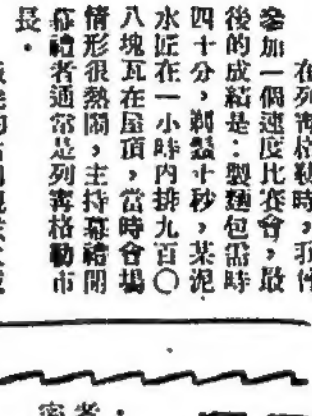 在列寧格勒時，我們
參加一個速度比賽會，最
後的成績是：製麵包需時
四十分，剃鬚十秒，某泥
水匠在一小時內排九百〇
八塊瓦在屋頂，當時會場
情形很熱鬧，主持幕禮開
幕禮者通常是列寧格勒市
長．